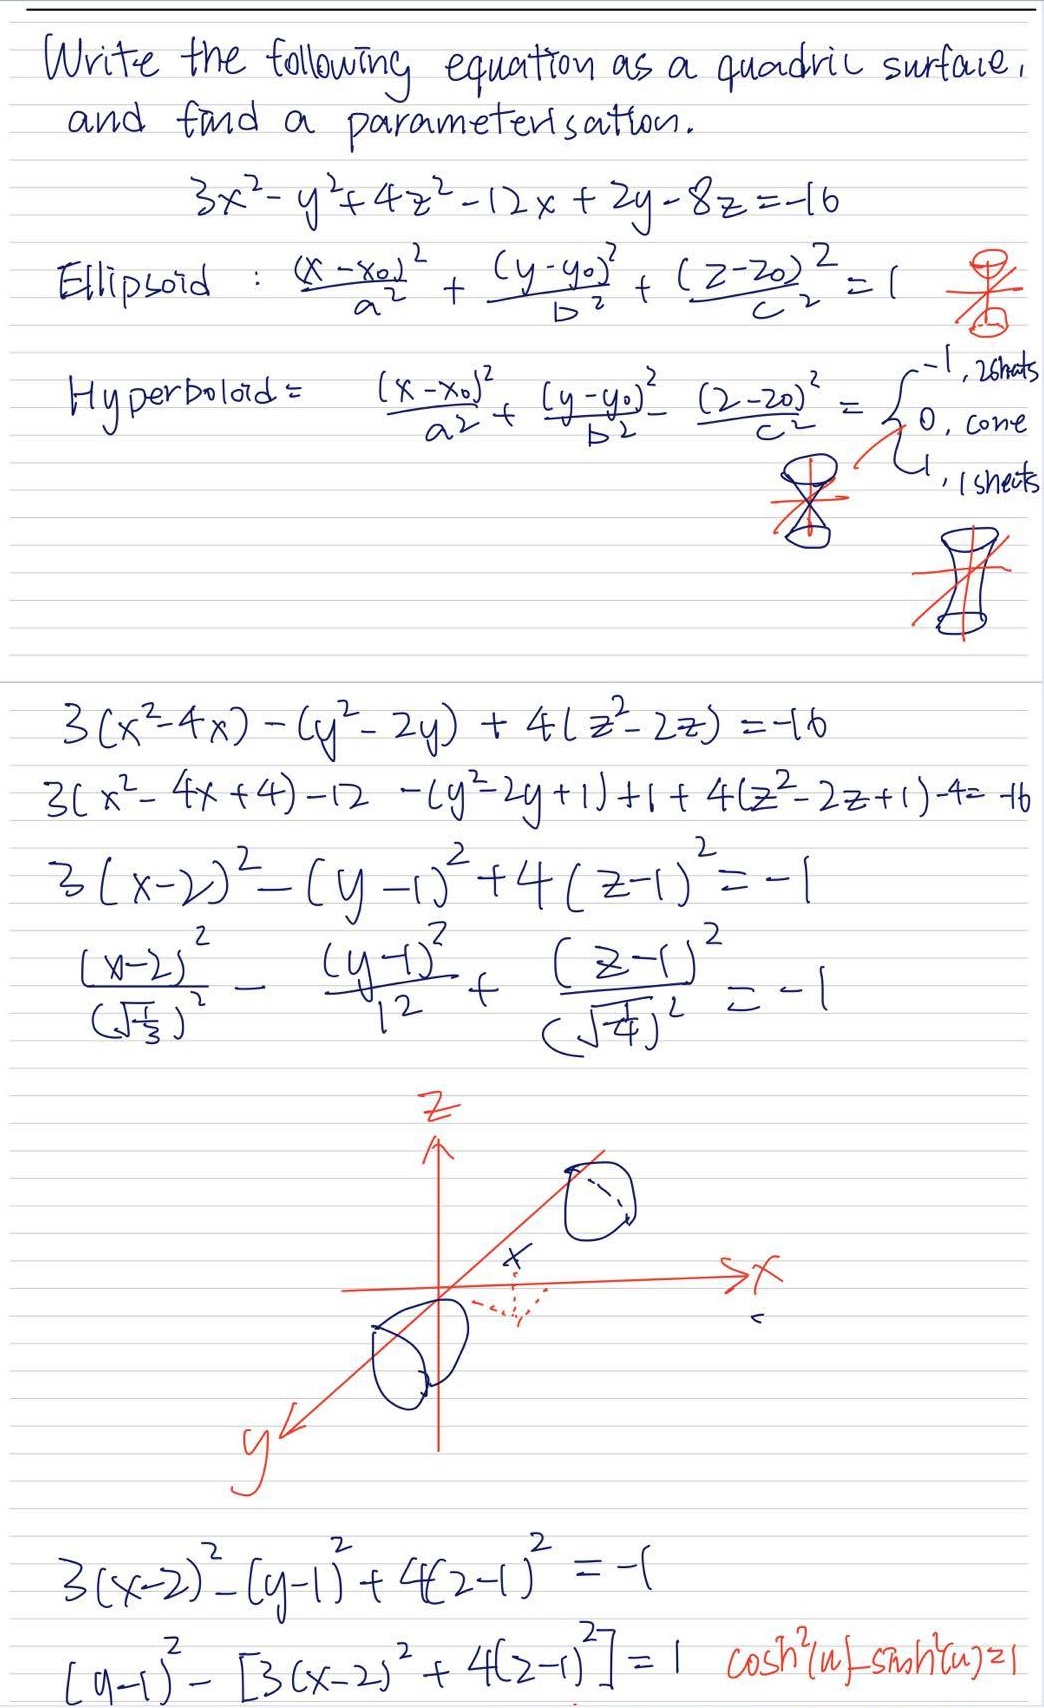 Write the following equation as a quadric surface,
and find a parameterisation.
3x² - y² + 4z² - 12x + 2y - 8z = -16
Ellipsoid : (x-x₀)²/a² + (y-y₀)²/b² + (z-z₀)²/c² = 1
Hyperboloid = (x-x₀)²/a² + (y-y₀)²/b² - (z-z₀)²/c² = { -1, 2 sheets
0, cone
1, 1 sheets
3(x²-4x) - (y²-2y) + 4(z²-2z) = -16
3(x²-4x+4) - 12 - (y²-2y+1) + 1 + 4(z²-2z+1) - 4 = -16
3(x-2)² - (y-1)² + 4(z-1)² = -1
(x-2)²/(√(1/3))² - (y-1)²/1² + (z-1)²/(√(1/4))² = -1
z
x
x
y
3(x-2)² - (y-1)² + 4(z-1)² = -1
(y-1)² - [3(x-2)² + 4(z-1)²] = 1 cosh²(u) - sinh²(u) = 1